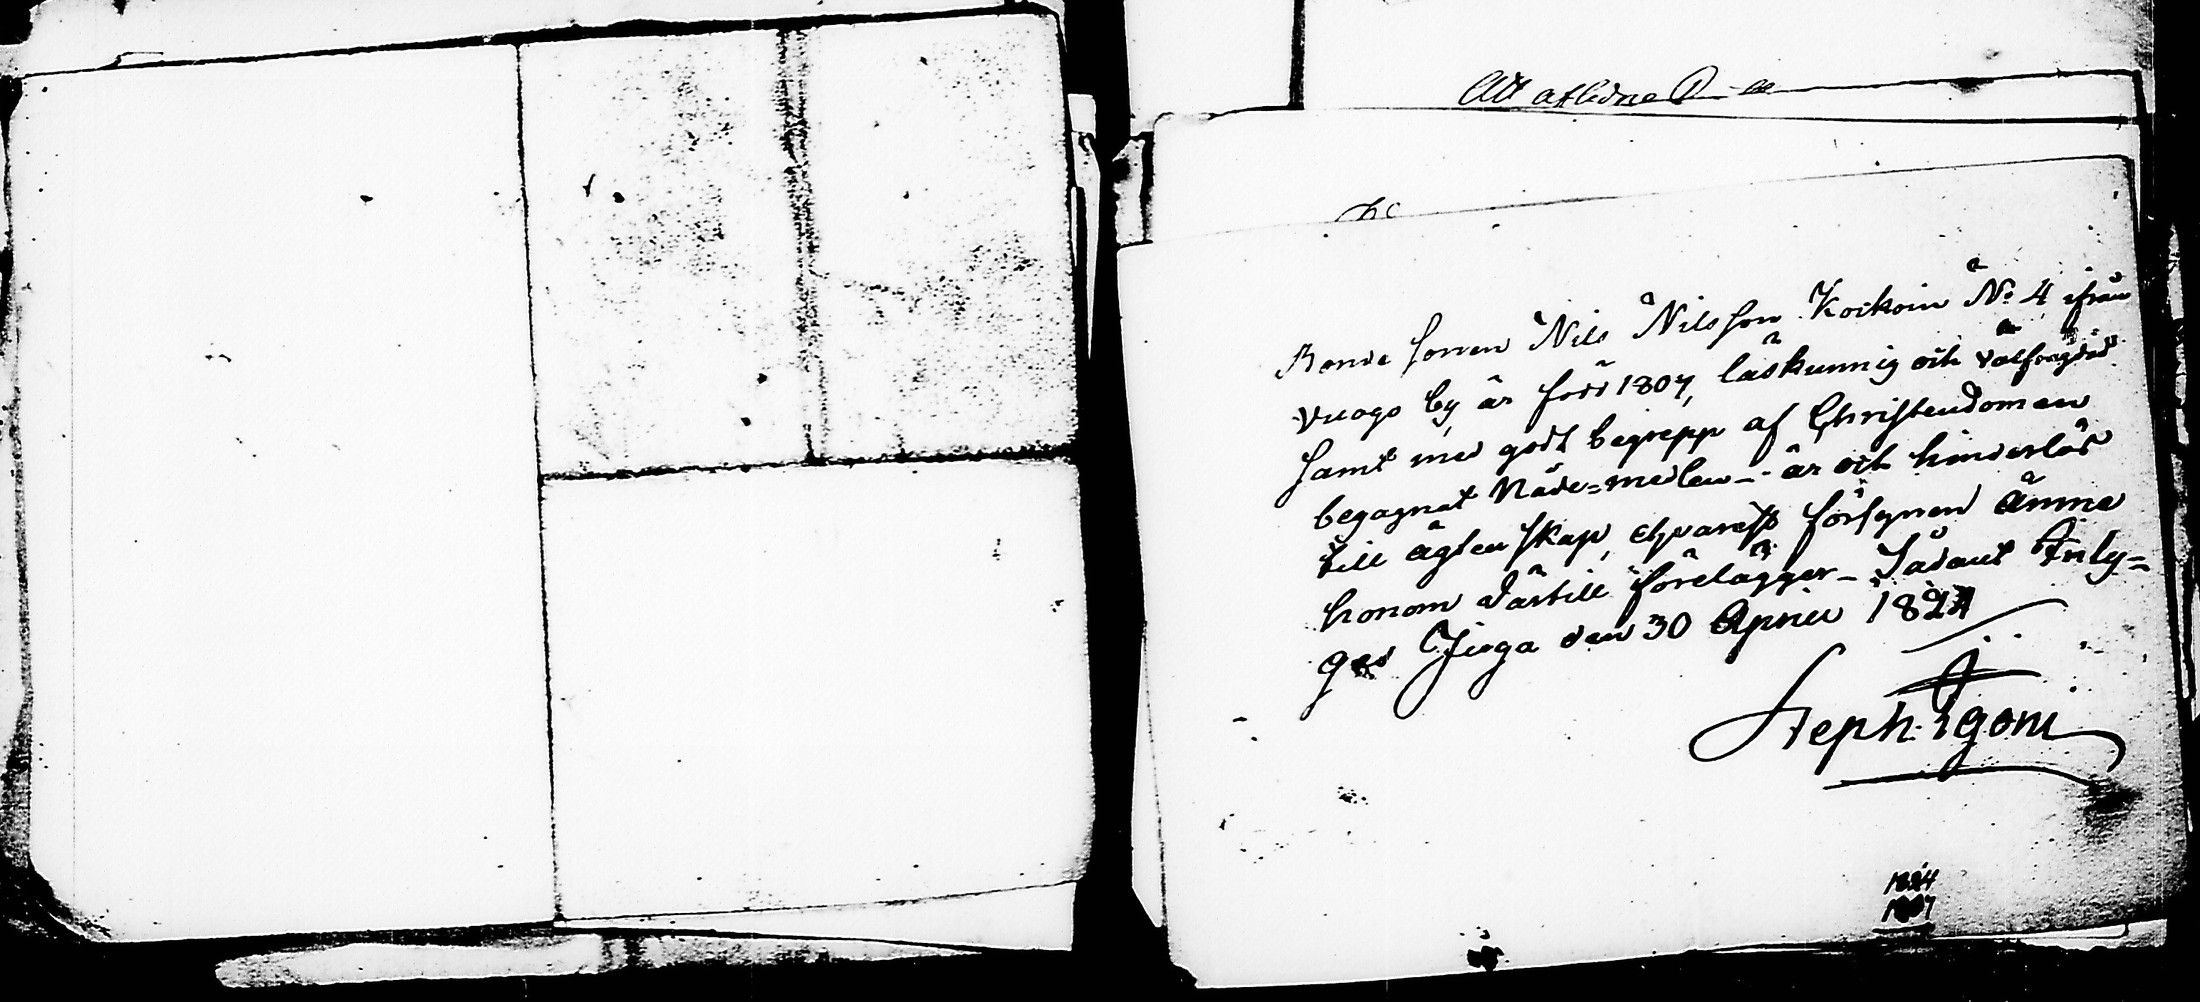 Att aflidne
Bonde sonen Nils Nilsson Koikoin No 4 ifrån
Vuogo by, är född 1807, läskunnig och välfrägdad
samt med godt begrepp af Christendomen
begagnat Nåde=medlen – är och hinderlös
till ägtenskap, ehvarest försynen ämne
honom därtill förelägger – Sådant Inty=
gas den 30 April 1824
Steph
1824
1807